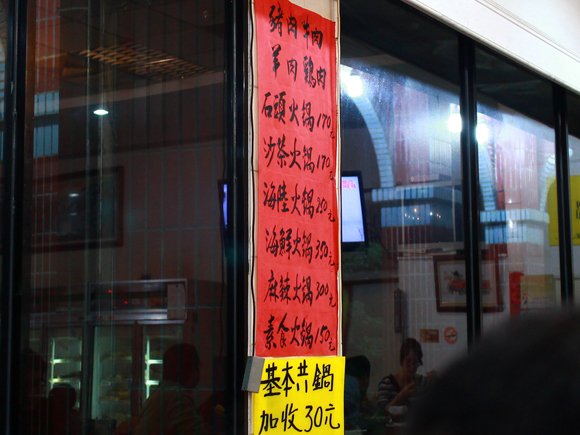 豬肉牛肉
羊肉鷄肉
石頭火鍋170元
沙茶火鍋170元
海陸火鍋250元
海鮮火鍋350元
麻辣火鍋300元
素食火鍋150元
基本共鍋
加收30元